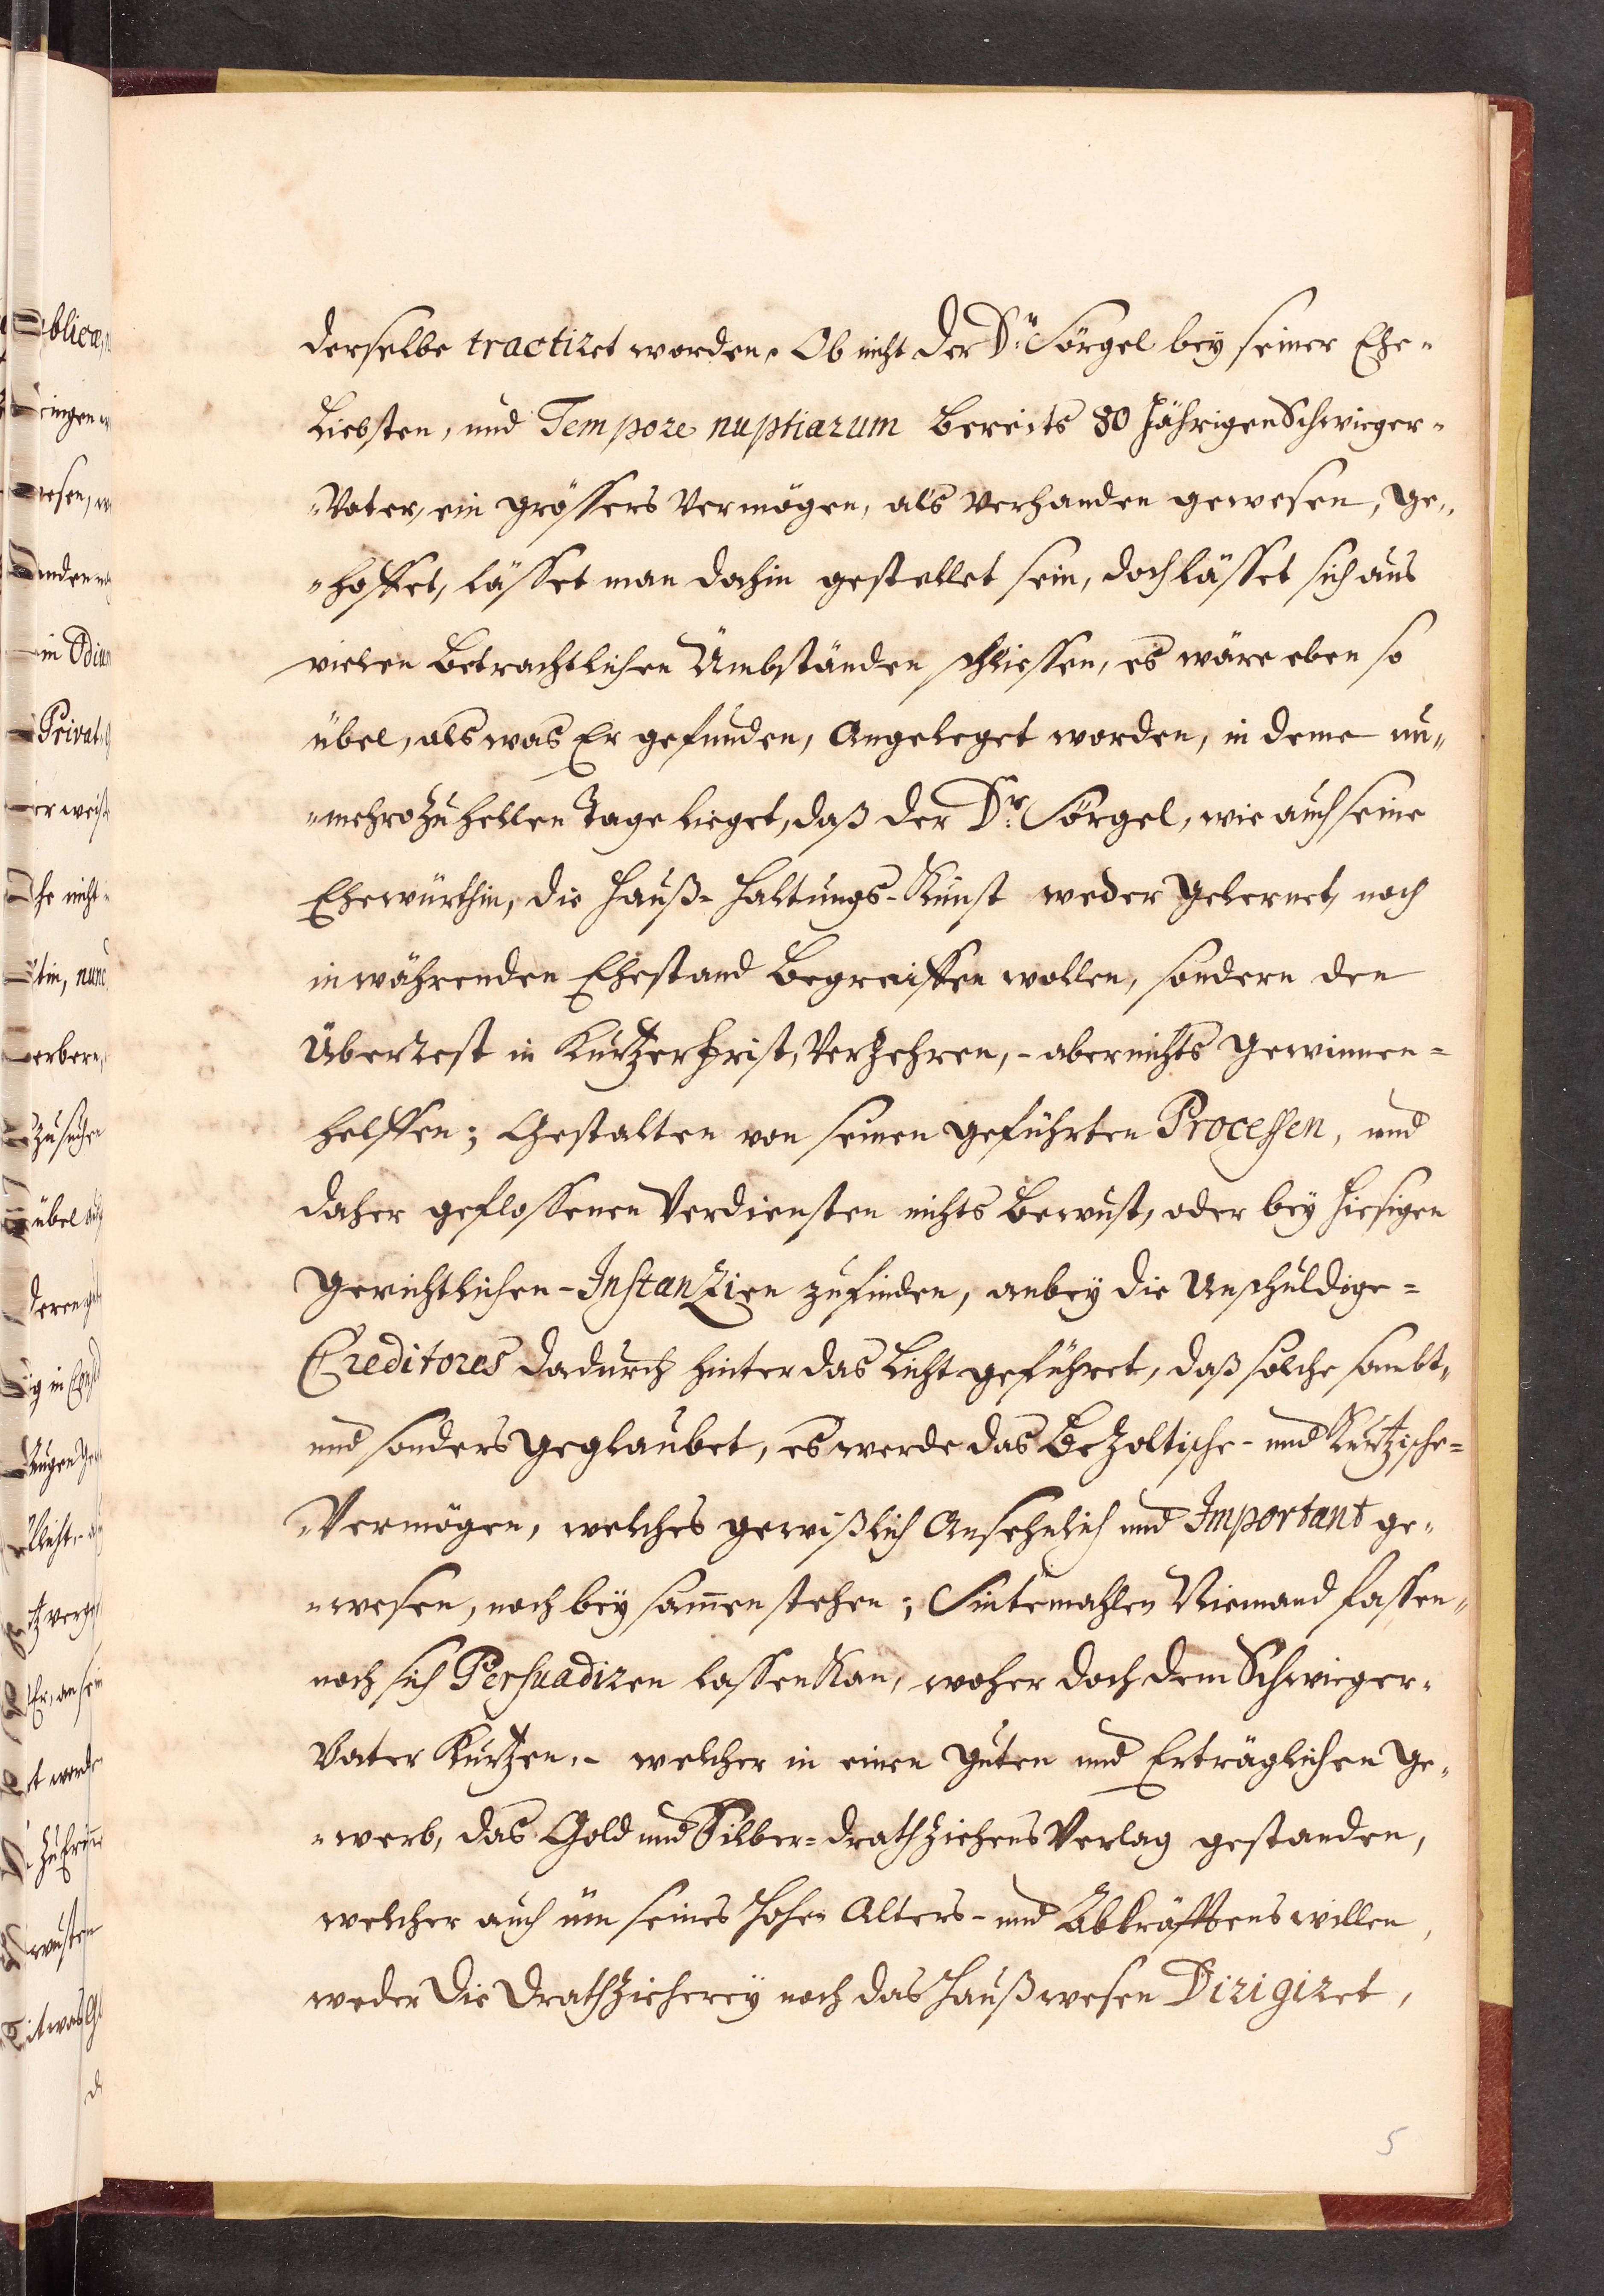 derselbe tractiret worden. Ob nicht der Dr: Sörgel bey seiner Ehe-
Liebsten, und Tempore nuptiarum bereits 80 Jährigen Schwieger-
-Vater, ein grössers Vermögen, als verhanden gewesen, ge-
-hoffet, lässet man dahin gestellet sein, doch lässet sich aus
vielen betrachtlichen Ümbständen schliessen, es wäre eben so
übel, als was Er gefunden, Angeleget worden, in deme nu-
-mehro zu hellen Tage lieget, daß der Dr: Sörgel, wie auch seine
Ehewürthin, die Hauß-Haltungs-Kunst weder gelernet, noch
in währenden Ehestand begreiffen wollen, sondern den
Überrest in Kurtzer Frist, verzehren, - aber nichts gewinnen=
helffen; Gestalten von seinen geführten Processen, und
daher geflossenen Verdiensten nichts bewust, oder bey hiesigen
Gerichtlichen-Instanzien zufinden, anbey die Unschuldige=
Creditores dadurch hinter das Licht geführet, daß solche sambt-
und sonders geglaubet, es werde das Bezoltische- und Kurtzische=
-Vermögen, welches gewißlich Ansehnlich und Important ge-
-wesen, noch bey sam̄en stehen; Sintemahlen Niemand fassen-
noch sich Persuadiren lassen Kan, woher doch dem Schwieger-
Vater Kurtzen, - welcher in einen guten und Erträglichen Ge-
-werb, das Gold und Silber=drathziehens Verlag gestanden,
welcher auch üm seines Hohen Alters- und Abkräfftens willen,
weder die Drathzieherey noch das Haußwesen Dirigiret,
5